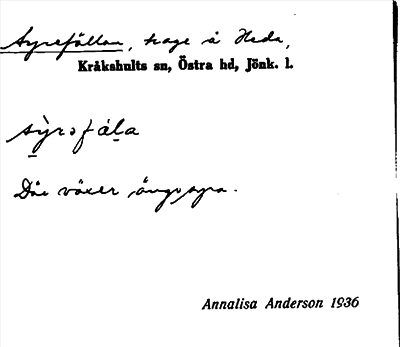 Syrefållan, hage å Heda,
Kråkshults sn, Östra hd, Jönk. l.
sỳrəfála
Där växer ängssyra.
Annalisa Anderson 1936